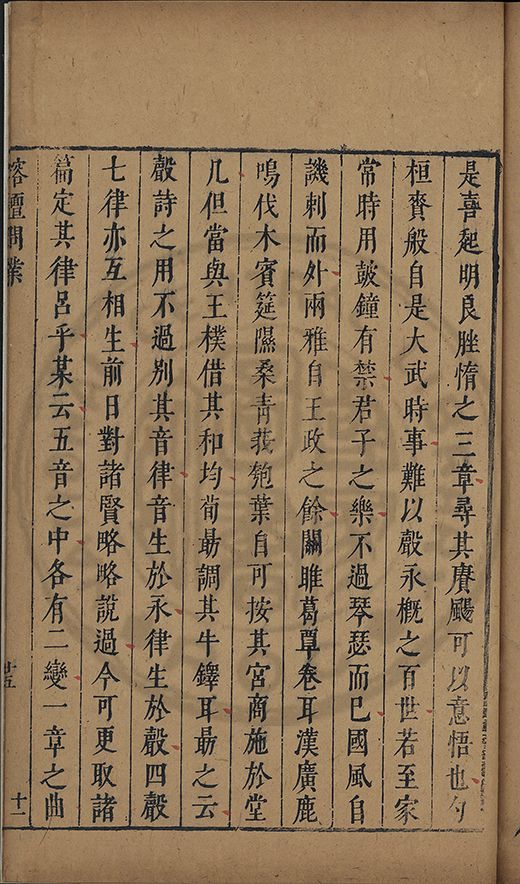 是喜起明良脞惰之三章尋其賡颺可以意悟也勺
桓賚般自是大武時事難以聲永概之百世若至家
常時用鼓鐘有禁君子之樂不過琴瑟而已國風自
譏刺而外兩雅自王政之餘關雎葛覃卷耳漢廣鹿
鳴伐木賓筵隰桑菁莪匏葉自可按其宮商施於堂
几但當與王樸借其和均荀勗調其牛鐸耳勗之云
聲詩之用不過別其音律音生於永律生於聲四聲
七律亦互相生前日對諸賢略略說過今可更取諸
篇定其律呂乎某云五音之中各有二變一章之曲
榕壇問業
廿五
十一